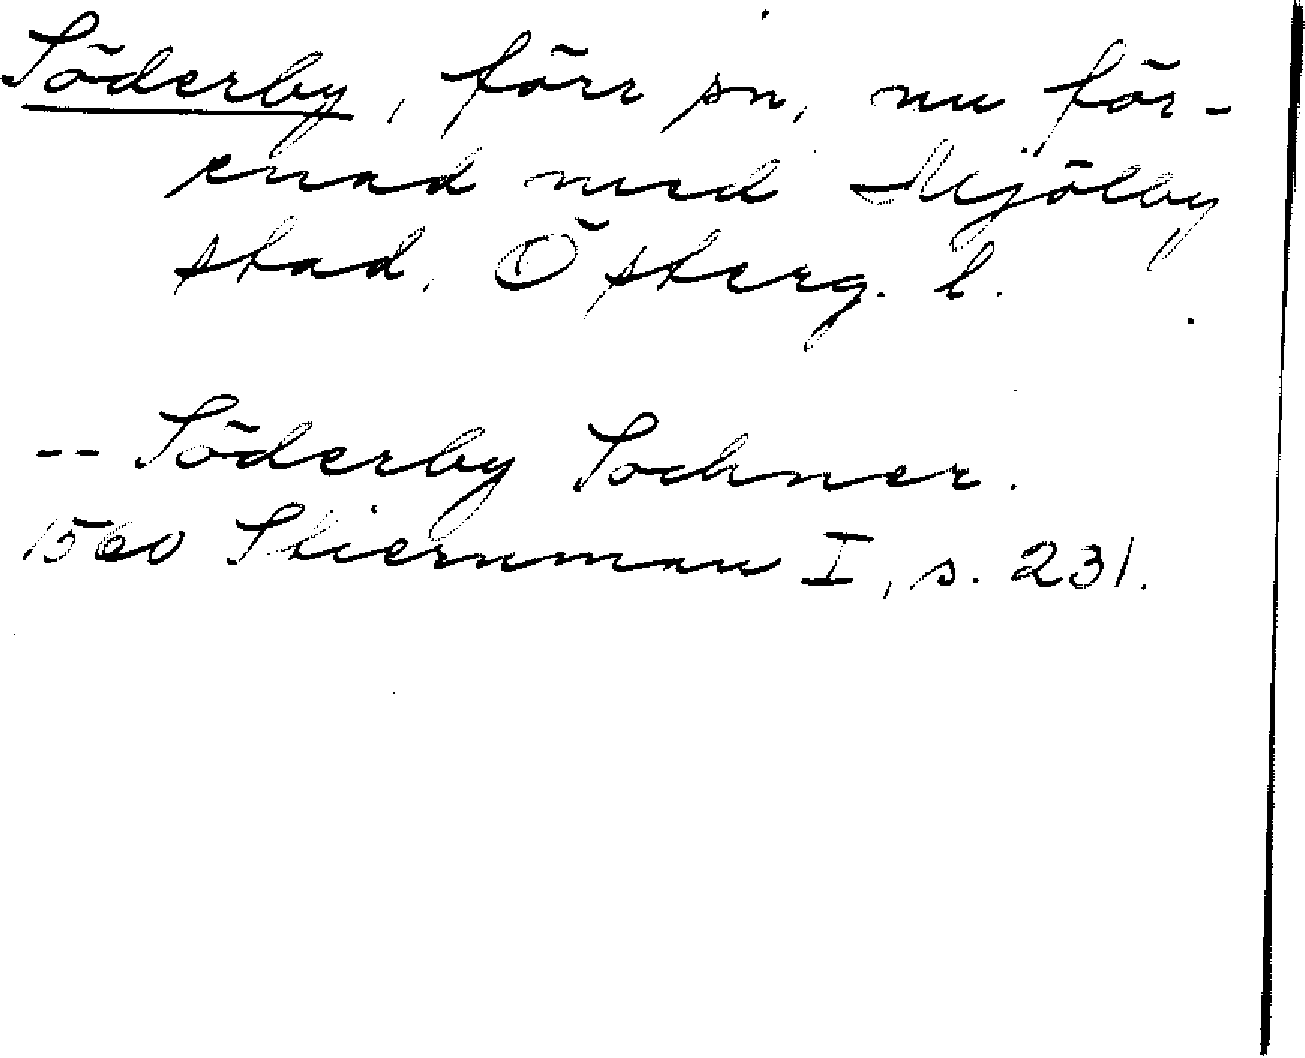 Söderby, förr sn, nu för-
enad med Mjölby
stad, Österg. l.
-- Söderby Sochner.
1560 Stiernman I, s. 231.